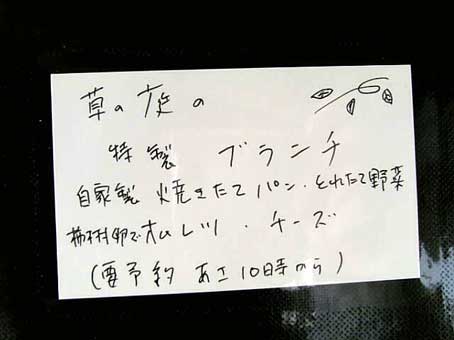 草の庭の
特製 ブランチ
自家製 焼きたてパン・とれたて野菜
柿木村卵でオムレツ・チーズ
(要予約 あさ10時から)